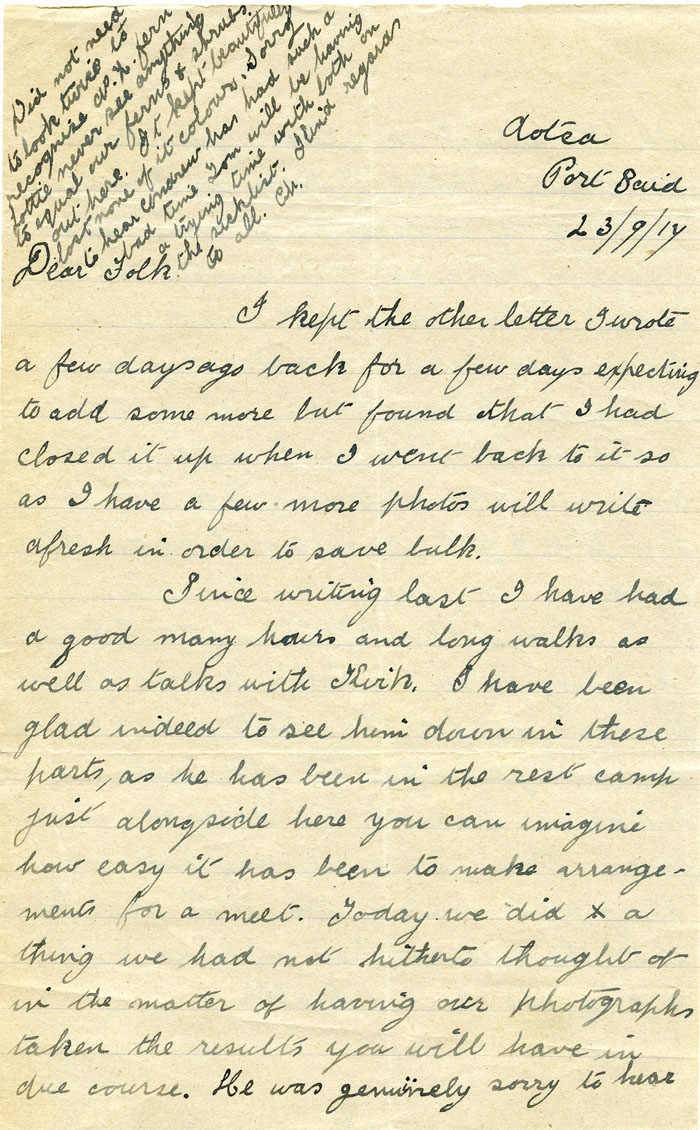 Did not need
to look twice to
recognise N.Z. fern
Lottie never see anything
to equal our ferns & shrubs
out here. It kept beautifully
lost none of it colour. Sorry
to hear Andrew has had such a
bad time Tom will be having
a trying time with both on
the sicklist. Kind regards
to all. Ch.
Aotea
Port Said
23/9/17
Dear Folk
I kept the other letter I wrote
a few days ago back for a few days expecting
to add some more but found that I had
closed it up when I went back to it so
as I have a few more photos will write
afresh in order to save bulk.
Since writing last I have had
a good many hours and long walks as
well as talks with Kirk. I have been
glad indeed to see him down in these
parts, as he has been in the rest camp
just alongside here you can imagine
how easy it has been to make arrange-
ments for a meet. Today we did x a
thing we had not hitherto thought of
in the matter of having our photographs
taken the results you will have in
due course. He was genuinely sorry to hear